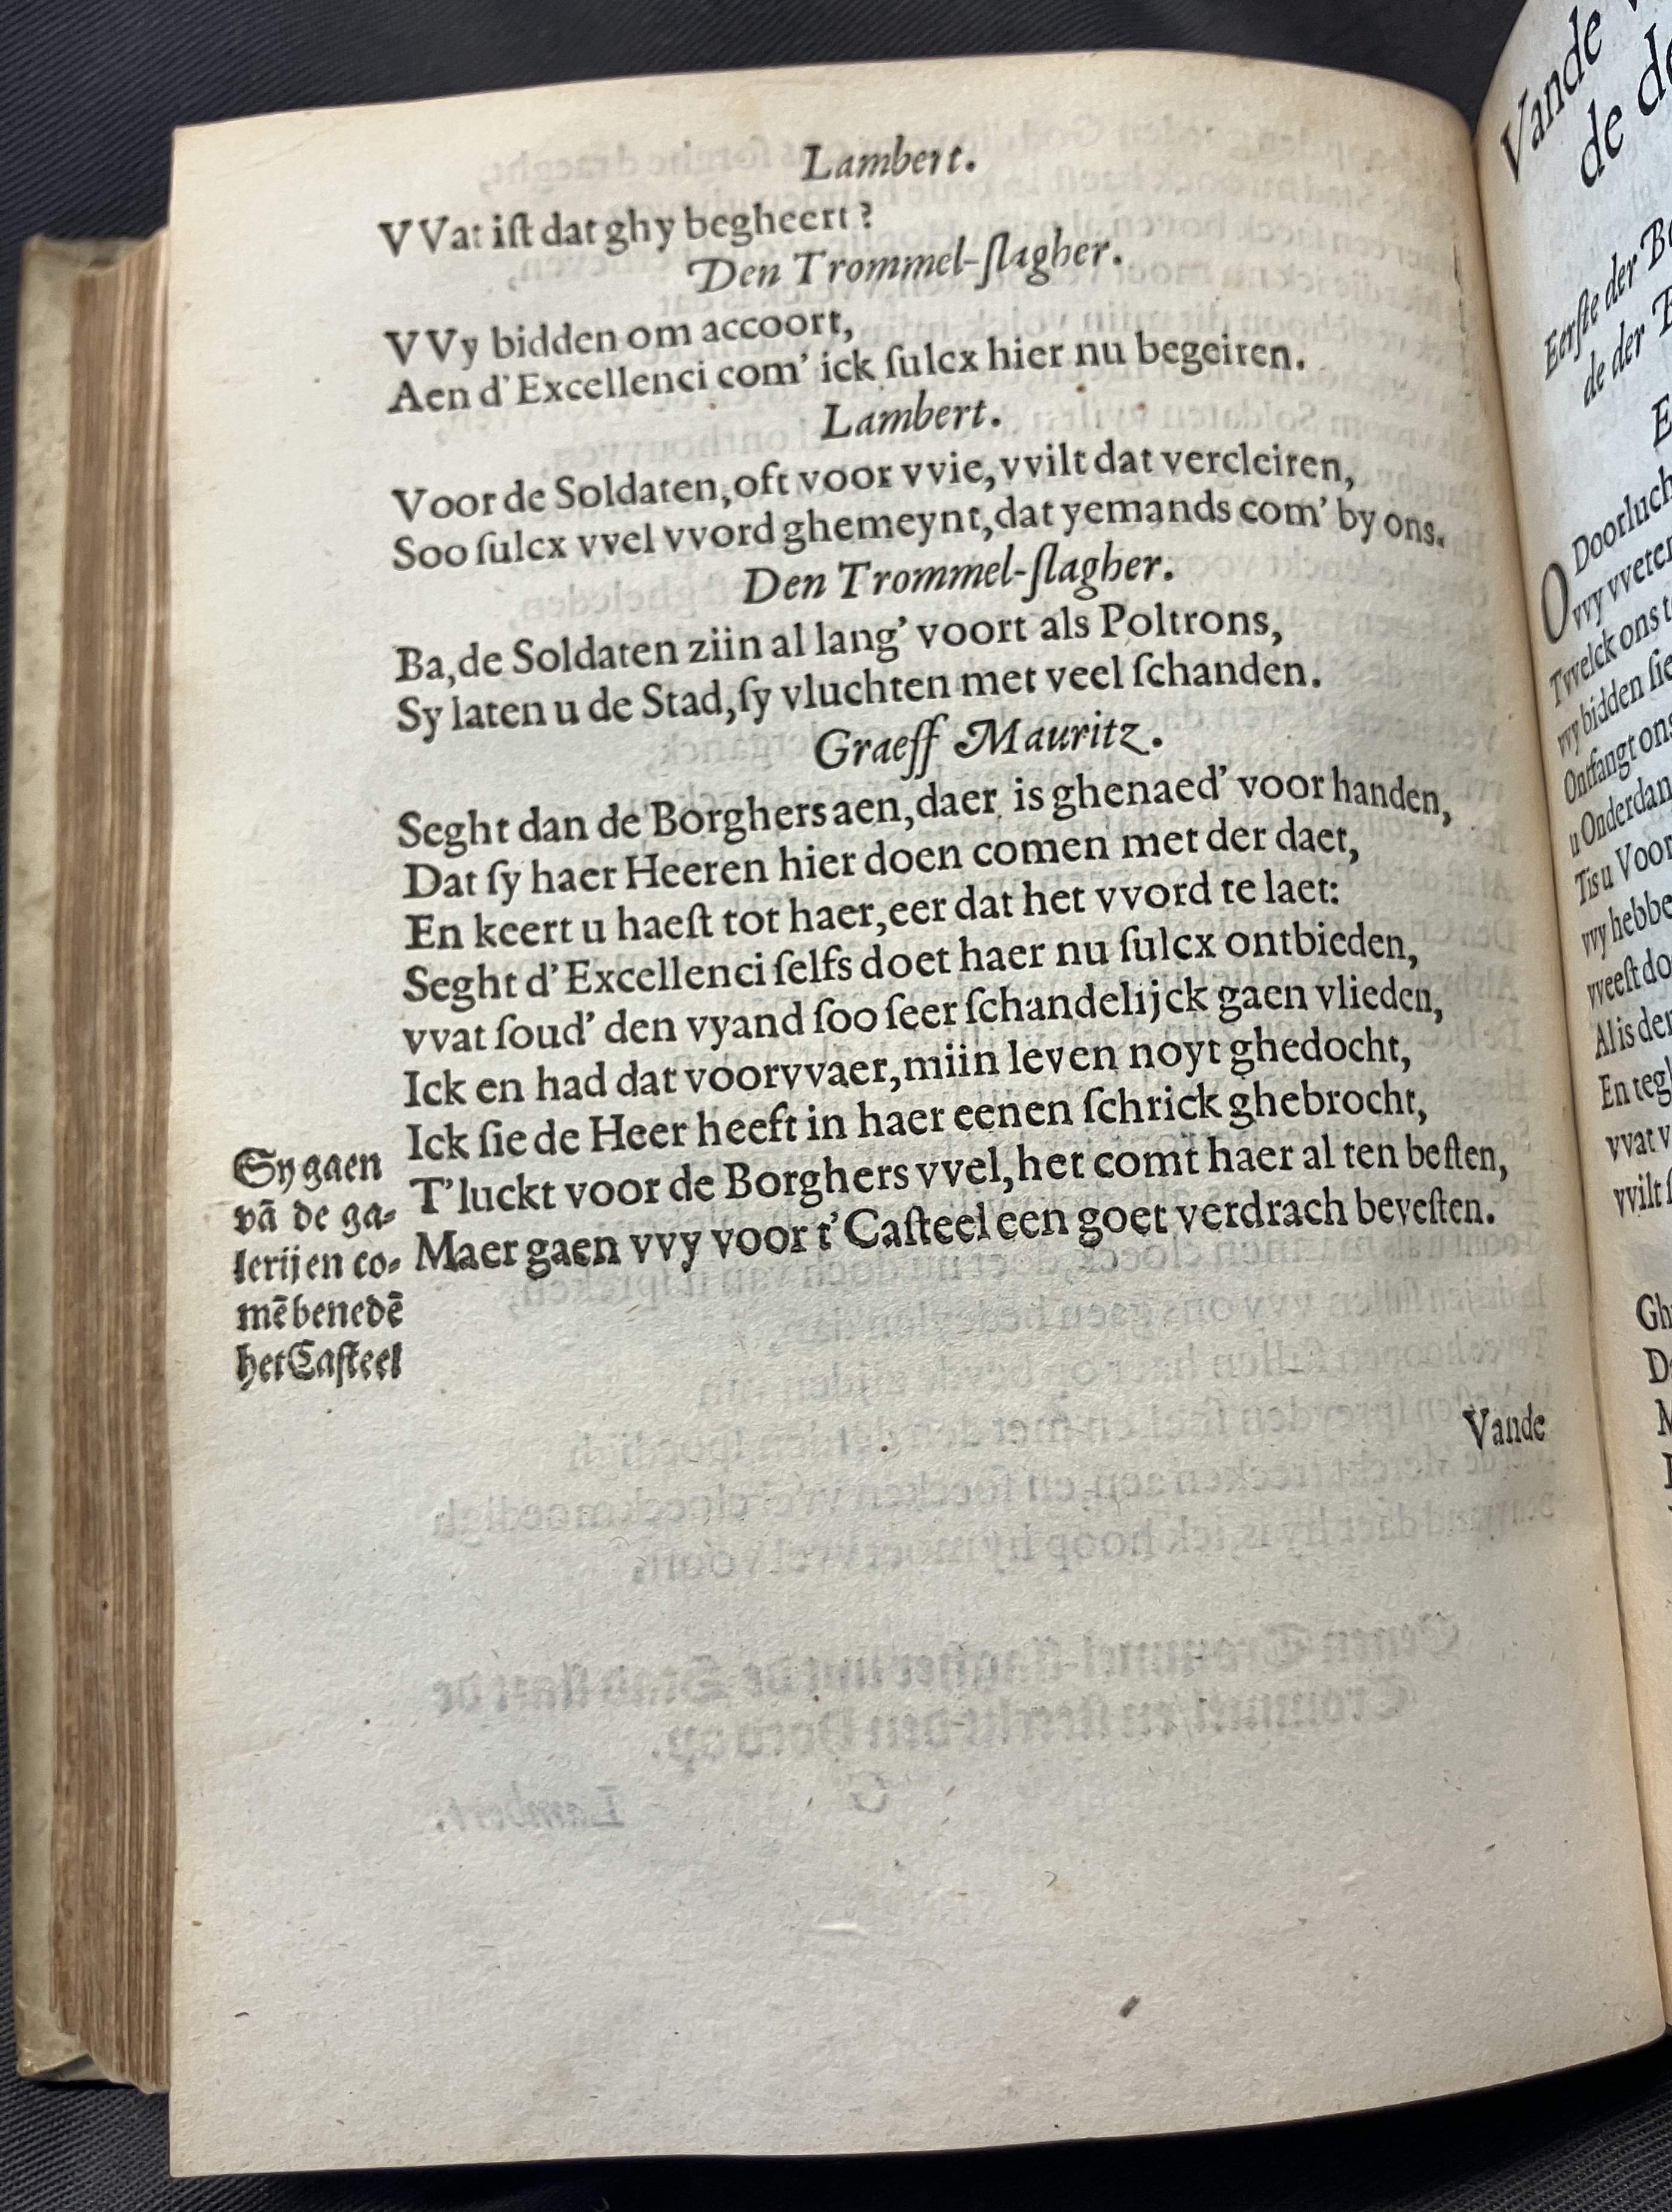 Lambert.
VVat iſt dat ghy begheert ?
Den Trommel-ſlagher.
VVy bidden om accoort,
Aen d'Excellenci com' ick ſulcx hier nu begeiren.
Lambert.
Voor de Soldaten, oft voor vvie, vvilt dat vercleiren,
Soo ſulcx vvel vvord ghemeynt, dat yemands com' by ons.
Den Trommel-ſlagher.
Ba, de Soldaten ziin al lang' voort als Poltrons,
Sy laten u de Stad, ſy vluchten met veel ſchanden.
Graeff Mauritz.
Seght dan de Borghers aen, daer is ghenaed' voor handen,
Dat ſy haer Heeren hier doen comen met der daet,
En keert u haeſt tot haer, eer dat het vvord te laet:
Seght d'Excellenci ſelfs doet haer nu ſulcx ontbieden,
vvat ſoud' den vyand ſoo ſeer ſchandelijck gaen vlieden,
Ick en had dat voorvvaer, miin leven noyt ghedocht,
Ick ſie de Heer heeft in haer eenen ſchrick ghebrocht,
T'luckt voor de Borghers vvel, het comt haer al ten beſten,
Maer gaen vvy voor t'Caſteel een goet verdrach beveſten.
Sy gaen
vā de ga-
lerij en co-
mē benedē
het Caſteel
Vande
Vande
de
Eerſte der
de der
E
O Doorluch
vvy vveten
Tvvelck ons
vvy bidden
Ontfangt ons
u Onderdan
Tis u Voor
vvy hebbe
vveeſt do
Al is der
En tegh
vvat
vvilt
Gh
D
M